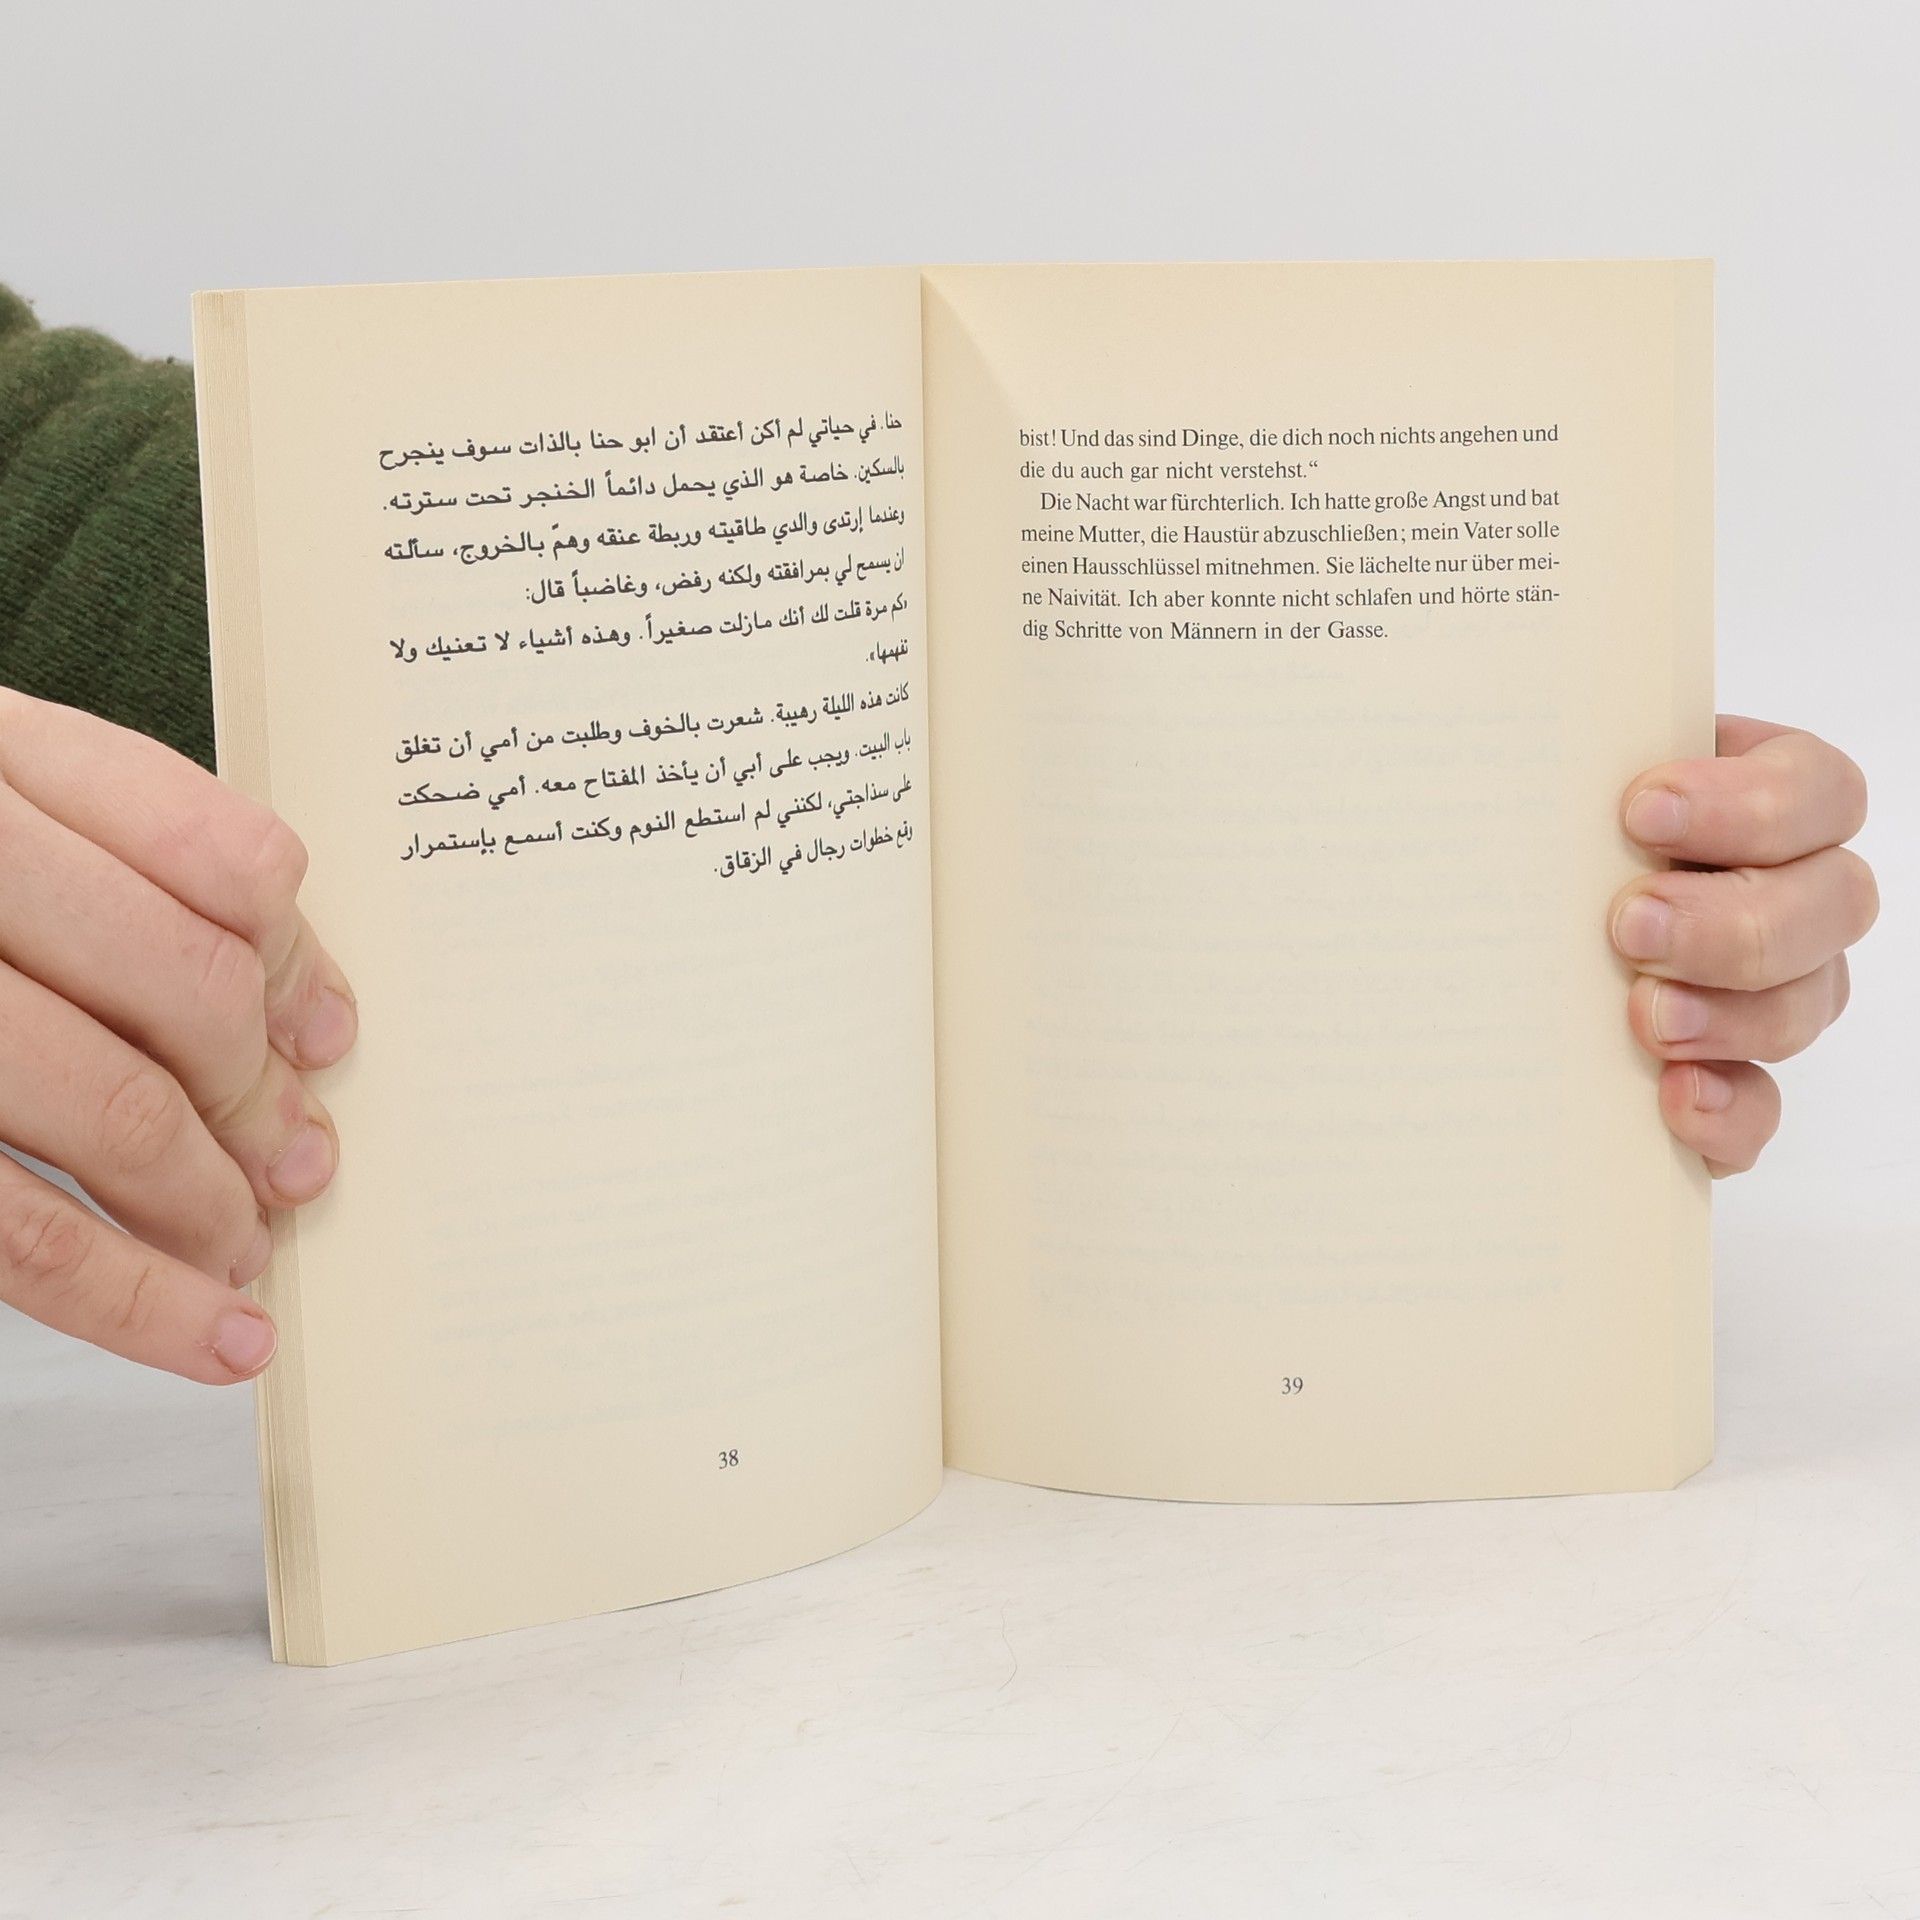 حنا. في حياتي لم أكن أعتقد أن ابو حنا بالذات سوف ينجرح
بالسكين. خاصة هو الذي يحمل دائماً الخنجر تحت سترته.
وعندما إرتدى والدي طاقيته وربطة عنقه وهمّ بالخروج، سألته
ان يسمح لي بمرافقته ولكنه رفض، وغاضباً قال:
«كم مرة قلت لك أنك مازلت صغيراً. وهذه أشياء لا تعنيك ولا
تفهمها».
كانت هذه الليلة رهيبة. شعرت بالخوف وطلبت من أمي أن تغلق
باب البيت. ويجب على أبي أن يأخذ المفتاح معه. أمي ضحكت
على سذاجتي، لكنني لم استطع النوم وكنت أسمع بإستمرار
وقع خطوات رجال في الزقاق.
38
bist! Und das sind Dinge, die dich noch nichts angehen und
die du auch gar nicht verstehst.“
Die Nacht war fürchterlich. Ich hatte große Angst und bat
meine Mutter, die Haustür abzuschließen; mein Vater solle
einen Hausschlüssel mitnehmen. Sie lächelte nur über mei-
ne Naivität. Ich aber konnte nicht schlafen und hörte stän-
dig Schritte von Männern in der Gasse.
39